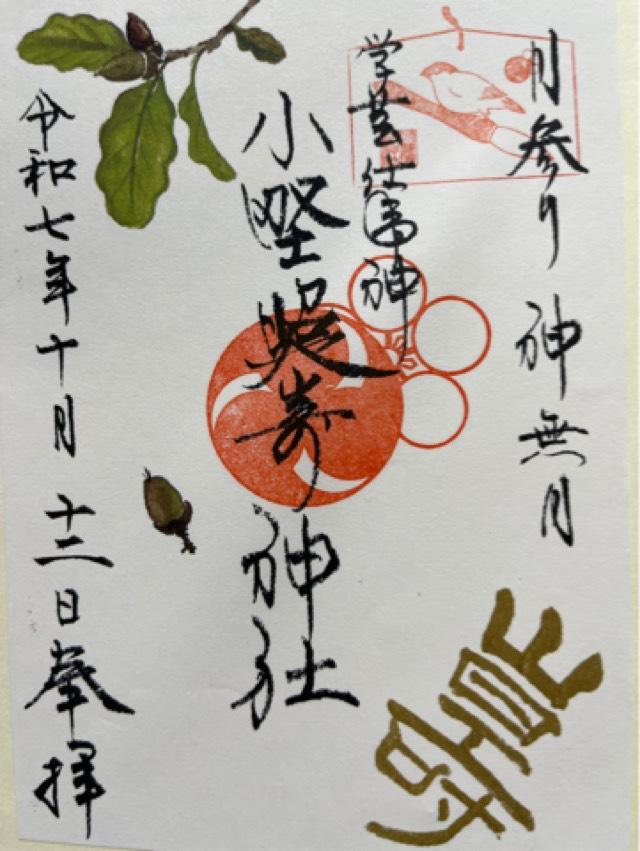 月参り 神無月
学芸仕事神
小野照崎神社
令和七年十月十二日奉拝
壽